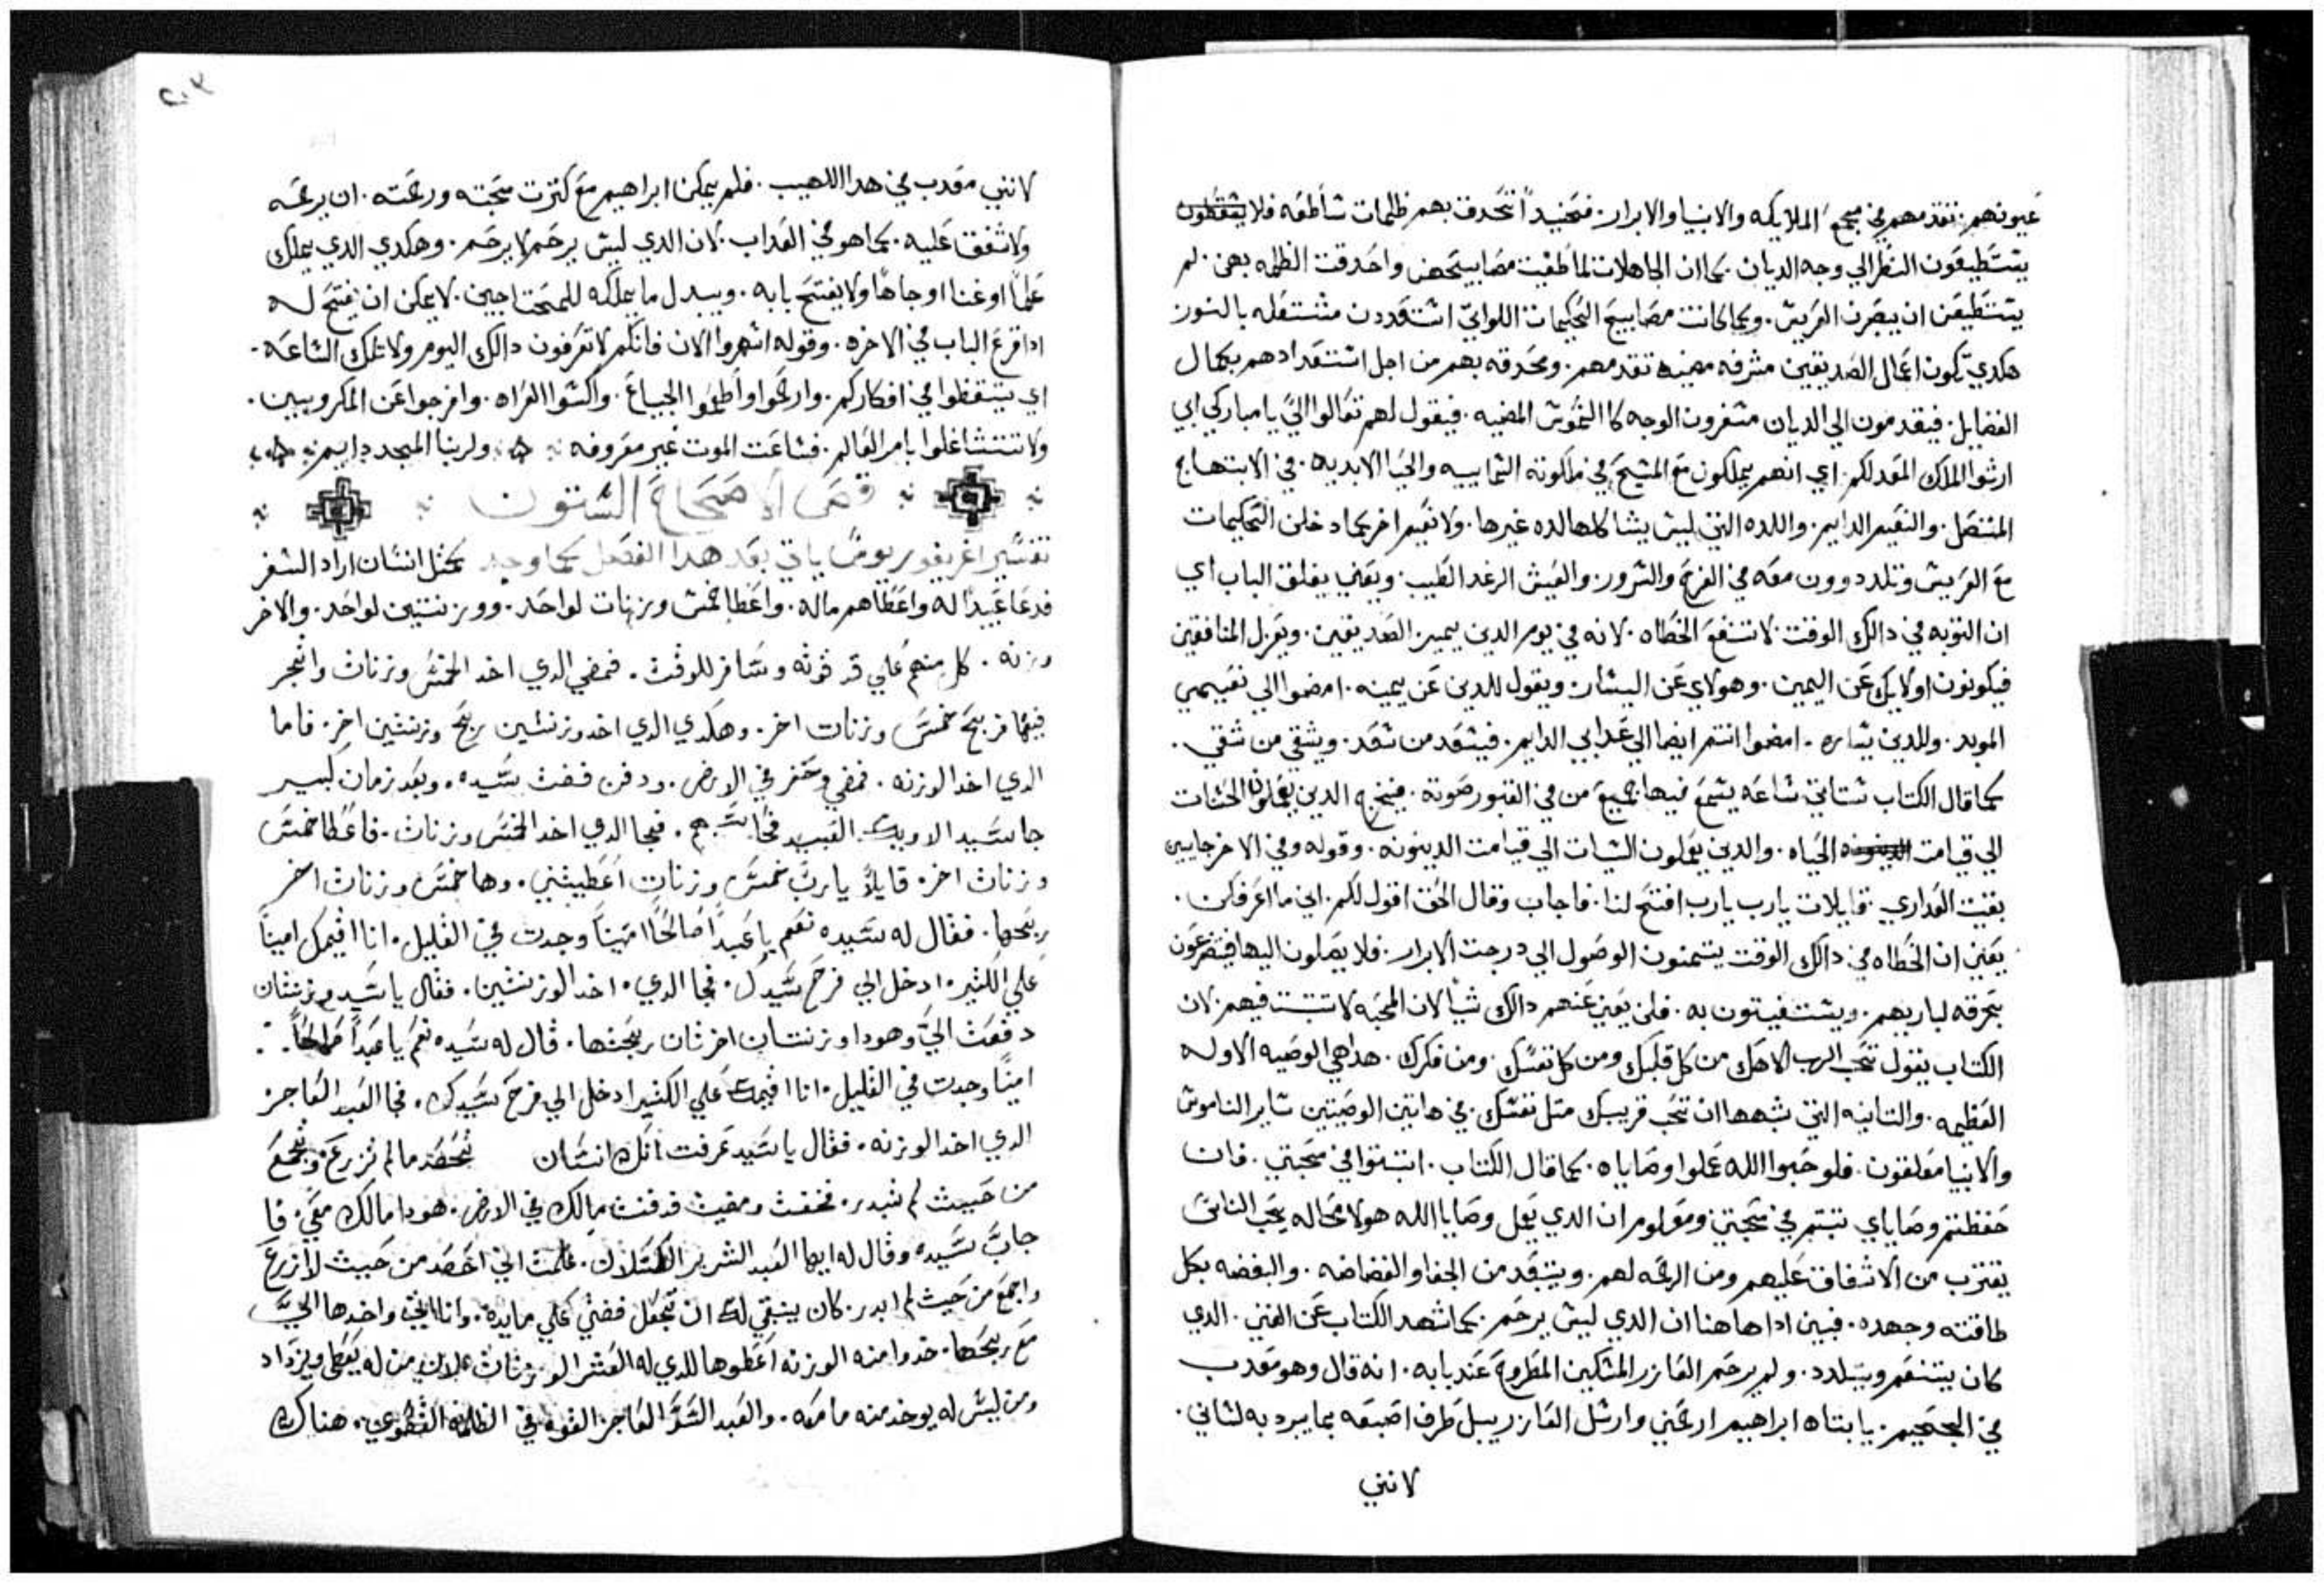 عيونهم. تقدمهم في مجمع الملايكه والانبيا والابرار. فحينيداً تحدق بهم ظلمات ساطعه فلا يقظون
يستطيعون النظر الي وجه الديان. كما ان الجاهلات لما طفيت مصابيحهن واحدقت الظلمه بهن. لم
يستطيعن ان يبصرن العريس. وكما كانت مصابيح الحكيمات اللواتي استعددن مشتعله بالنور
هكدي تكون اعمال الصديقين مشرقه مضيه تقدمهم. ومحدقه بهم من اجل استعدادهم بكمال
الفضايل. فيقدمون الي الديان مسفرون الوجه كالشموس المضيه. فيقول لهم تعالوا اليّ يا مباركي ابي
ارثوا الملك المعد لكم. اي انهم يملكون مع المسيح في ملكوته السماييه والحيا الابديه. في الابتهاج
المتصل. والنعيم الدايم. واللده التي ليس يشاكلها لده غيرها. ولا نعيم اخر كما دخلن الحكيمات
مع العريس وتلددوون معه في الفرح والسرور. والعيش الرغد الطيب. ويعني يغلق الباب اي
ان التوبه في دالك الوقت لا تنفع الخطاه. لانه في يوم الدين يميز. الصديقين. ويعزل المنافقين
فيكونون اوليك عن اليمين. وهولاي عن اليسار. ويقول للدين عن يمينه. امضوا الي نعيمي
الموبد. وللدين يساره. امضوا انتم ايضا الي عدابي الدايم. فيسعد من سعد. ويشقي من شقي.
كما قال الكتاب ستاتي ساعه يسمع فيها جميع من في القبور صوته. فيخرج الدين يعملون الحسنات
الي قيامت الدينونه الحياه. والدين يعملون السيات الي قيامت الدينونه. وقوله وفي الاخر جايين
بقيت العداري. قايلات يارب يارب افتح لنا. فاجاب وقال الحق اقول لكم. اني ما اعرفكن.
يعني ان الخطاه في دالك الوقت يتمنون الوصول الي درجت الابرار. فلا يصلون اليها فيتضرعون
بحرقه لباريهم. ويستغيتون به. فلن يغني عنهم دالك شيأ لان المحبه لا تتبت فيهم. لان
الكتاب يقول تحب الرب الاهك من كل قلبك ومن كل نفسك. ومن فكرك. هدا هي الوصيه الاوله
العظيمه. والتانيه التي تشبهها ان تحب قريبك متل نفسك. في هاتين الوصيتين ساير الناموس
والانبيا معلقون. فلو حبوا الله عملوا وصاياه. كما قال الكتاب. اتبتوا في محبتي. فان
حفظتم وصاياي تبتم في محبتي ومعلوم ان الدي يعمل وصايا الله هو لا محاله يحب الناس
يقترب من الاشفاق عليهم ومن الرحمه لهم. ويتبعد من الجفا والفضاضه. والبغضه بكل
طاقته وجهده. فبين ادا هاهنا ان الدي ليس يرحم. كما شهد الكتاب عن الغني. الدي
كان يتنعم ويتلدد. ولم يرحم العازر المسكين المطروح عند بابه. انه قال وهو معدب
في الجحيم. يا ابتاه ابراهيم ارحمني وارسل العازر يبل طرف اصبعه بما يبرد به لساني.
لانني
٢٠٣
لانني معدب في هدا اللهيب. فلم يمكن ابراهيم مع كترت محبته ورحمته. ان يرحمه
ولا شفق عليه. كما هو في العداب. لان الدي ليس يرحم لا يرحم. وهكدي الدي يملك
علماً او غنا او جاهاً ولا يفتح بابه. ويبدل ما يملكه للمحتاجين. لا يمكن ان يفتح له
ادا قرع الباب في الاخره. وقوله اسهروا الان فانكم لا تعرفون دالك اليوم ولا تلك الساعه.
اي تيقظوا في افكاركم. وارحموا واطعموا الجياع. واكسوا العراه. وافرجوا عن المكروبين.
ولا تتشاغلوا بامر العالم. فساعت الموت غير معروفه ولربنا المجد دايم
قص الاصحاح الستون
تفسير اغريغوريوس ياتي بعد هدا الفصل كما وجد كمتل انسان اراد السفر
فدعا عبيداً له واعطاهم ماله. واعطا خمس وزنات لواحد. ووزنتين لواحد. والاخر
وزنه. كل منهم علي قدر قوته وسافر للوقت. فمضي الدي اخد الخمس وزنات واتجر
فيها فربح خمس وزنات اخر. وهكدي الدي اخد وزنتين ربح وزنتين اخر. فاما
الدي اخد الوزنه. فمضي وحفر في الارض. ودفن فضت سيده. وبعد زمان كبير
جا سيد الاوليك العبيد فحاسبهم. فجا الدي اخد الخمس وزنات. فاعطا خمس
وزنات اخر. قايلاً يارب خمس وزنات اعطيتني. وها خمس وزنات اخر
ربحها. فقال له سيده نعم يا عبداً صالحاً اميناً وجدت في القليل. انا اقيمك اميناً
علي الكتير. ادخل الي فرح سيدك. فجا الدي. اخد الوزنتين. فقال يا سيد وزنتان
دفعت اليّ وهودا وزنتان اخرتان ربحتها. قال له سيده نعم يا عبداً صالحاً.
اميناً وجدت في القليل. انا اقيمك علي الكتير ادخل الي فرح سيدك. فجا العبد الفاجر
الدي اخد الوزنه. فقال يا سيد عرفت انك انسان تحصد ما لم تزرع وتجمع
من حيت لم تبدر. فخفت ومضيت فدفنت مالك في الارض. هودا مالك معي. فا
جاب سيده وقال له ايها العبد الشرير الكسلان. علمت اني احصد من حيت لا ازرع
واجمع من حيت لم ابدر. كان ينبغي لك ان تجعل فضتي علي مايدة. وانا اتي واخدها اليّ
مع ربحها. خدوا منه الوزنه اعطوها للدي له العشر الوزنات لان من له يعطي ويزداد
ومن ليس له يوخد منه ما معه. والعبد السو الفاجر القوه في الظلمه القصوي. هناك